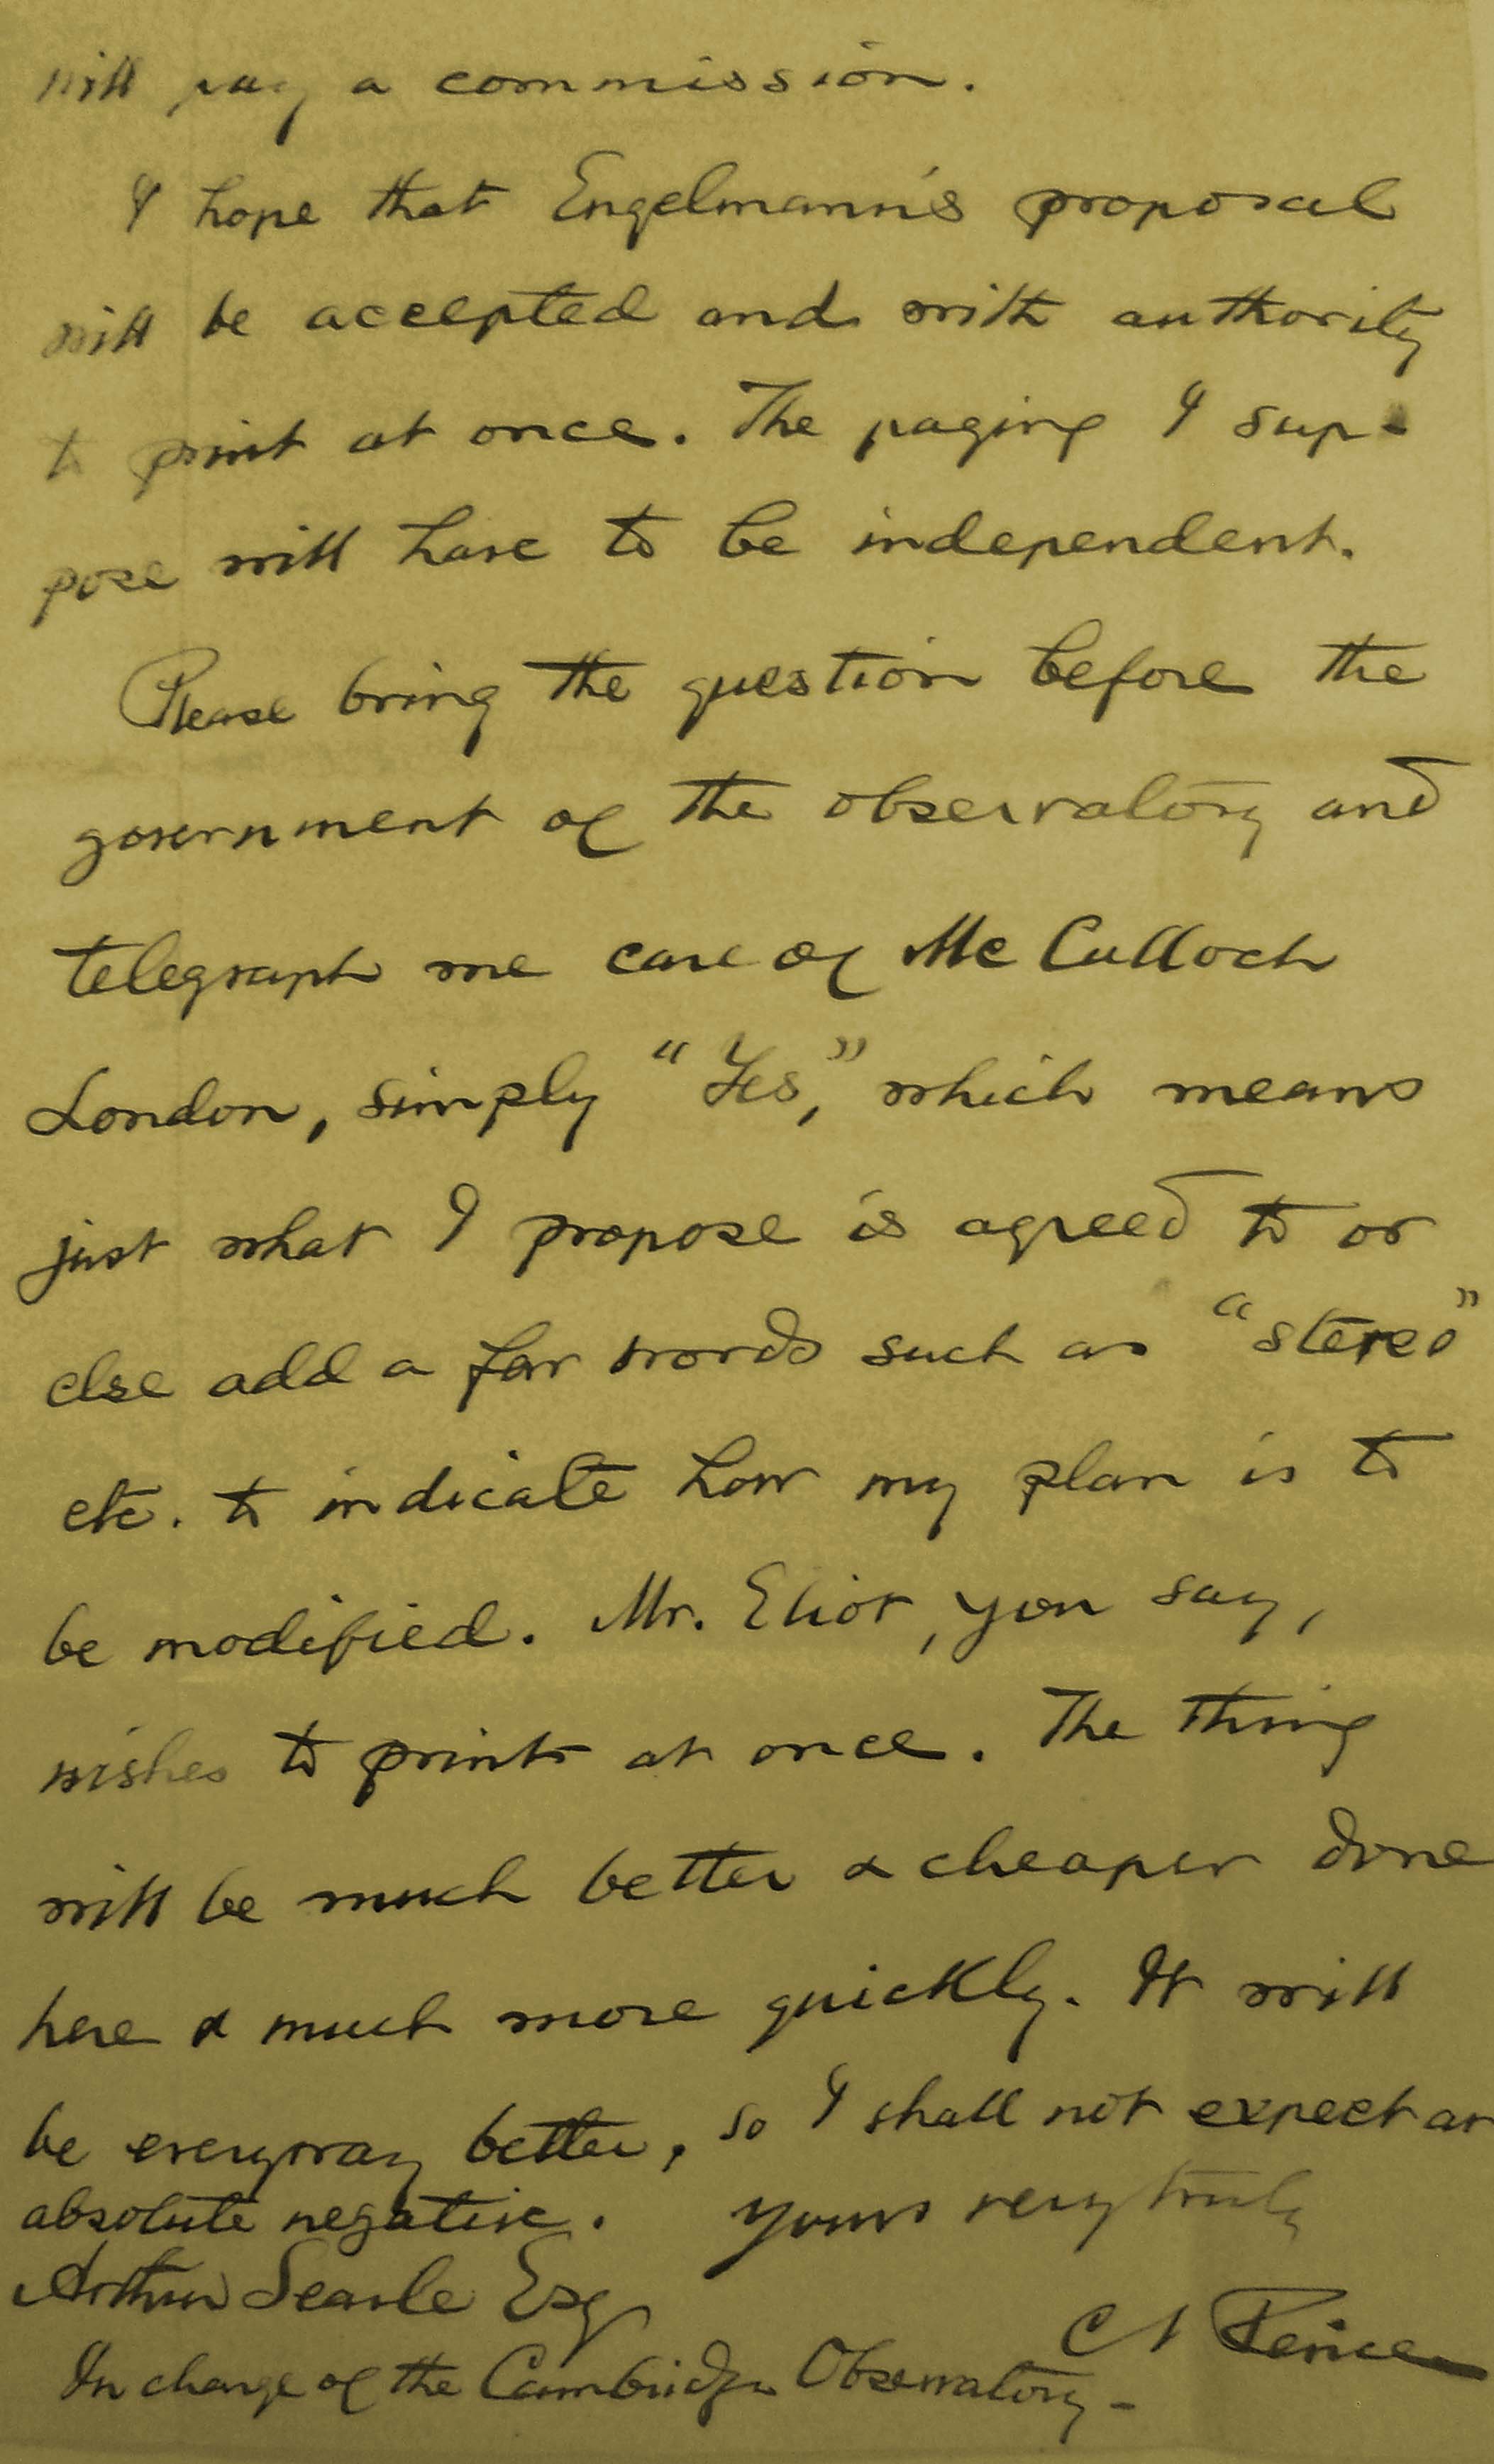 will pay a commission.
I hope that Engelmann's proposal
will be accepted and with authority
to print at once. The paging I sup-
pose will have to be independent.
Please bring the question before the
government of the observatory and
telegraph me care of McCulloch
London, simply "Yes," which means
just what I propose is agreed to or
else add a few words such as "stereo"
etc. to indicate how my plan is to
be modified. Mr. Eliot, you say,
wishes to print at once. The thing
will be much better & cheaper done
here & much more quickly. It will
be everyway better, so I shall not expect an
absolute negative. Yours very truly
Arthur Searle Esq
C S Peirce
In charge of the Cambridge Observatory-